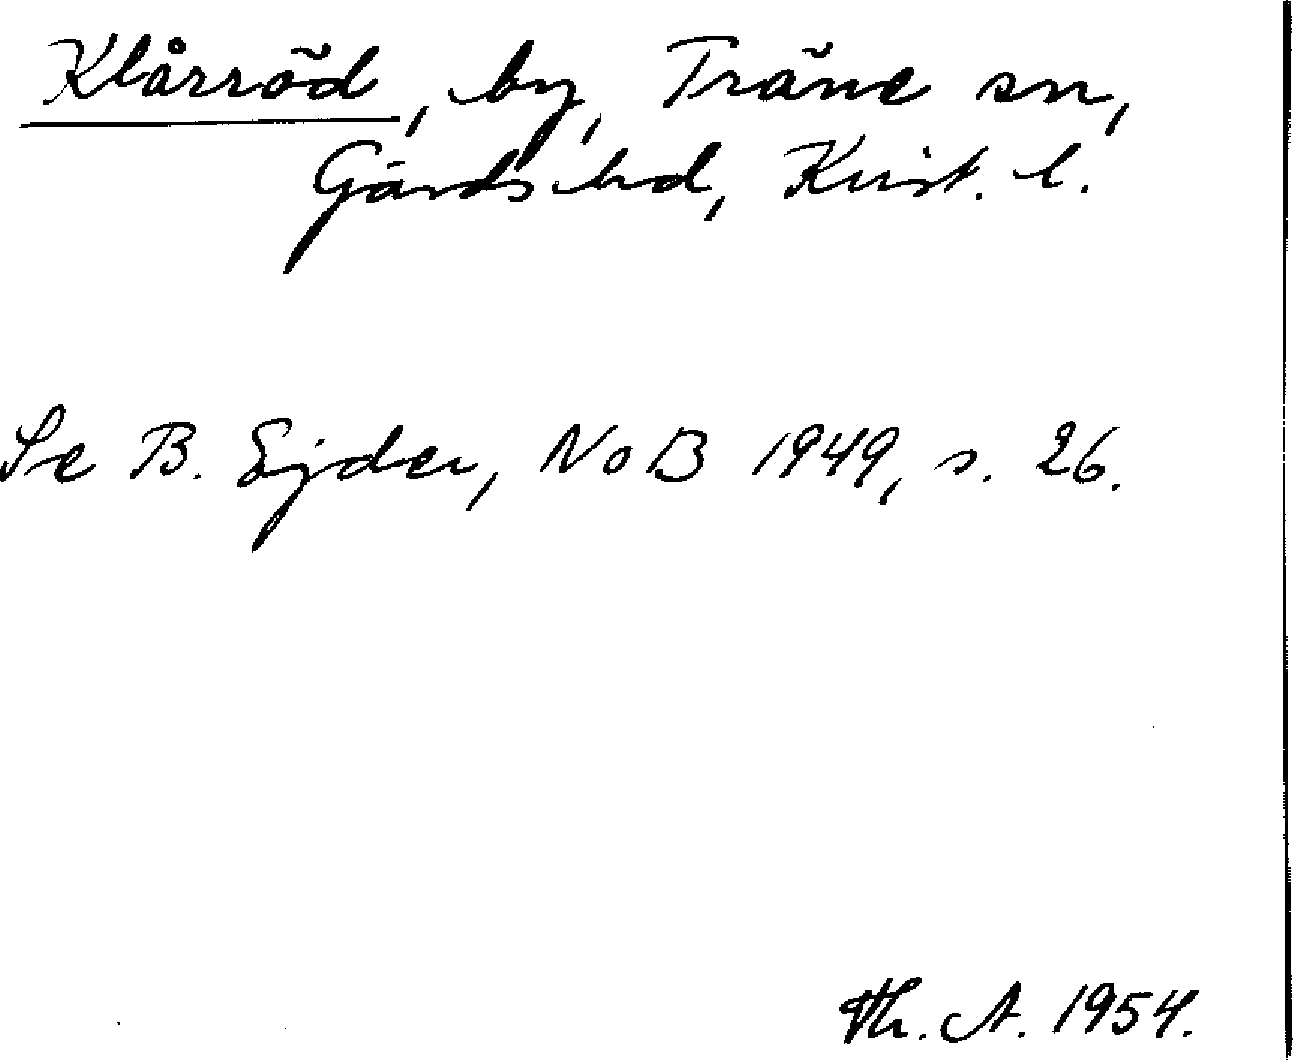 Klårröd, by, Träne sn,
Gärds hd, Krist. l.
Se B. Ejder, NoB 1949, s. 26.
Th. A. 1954.